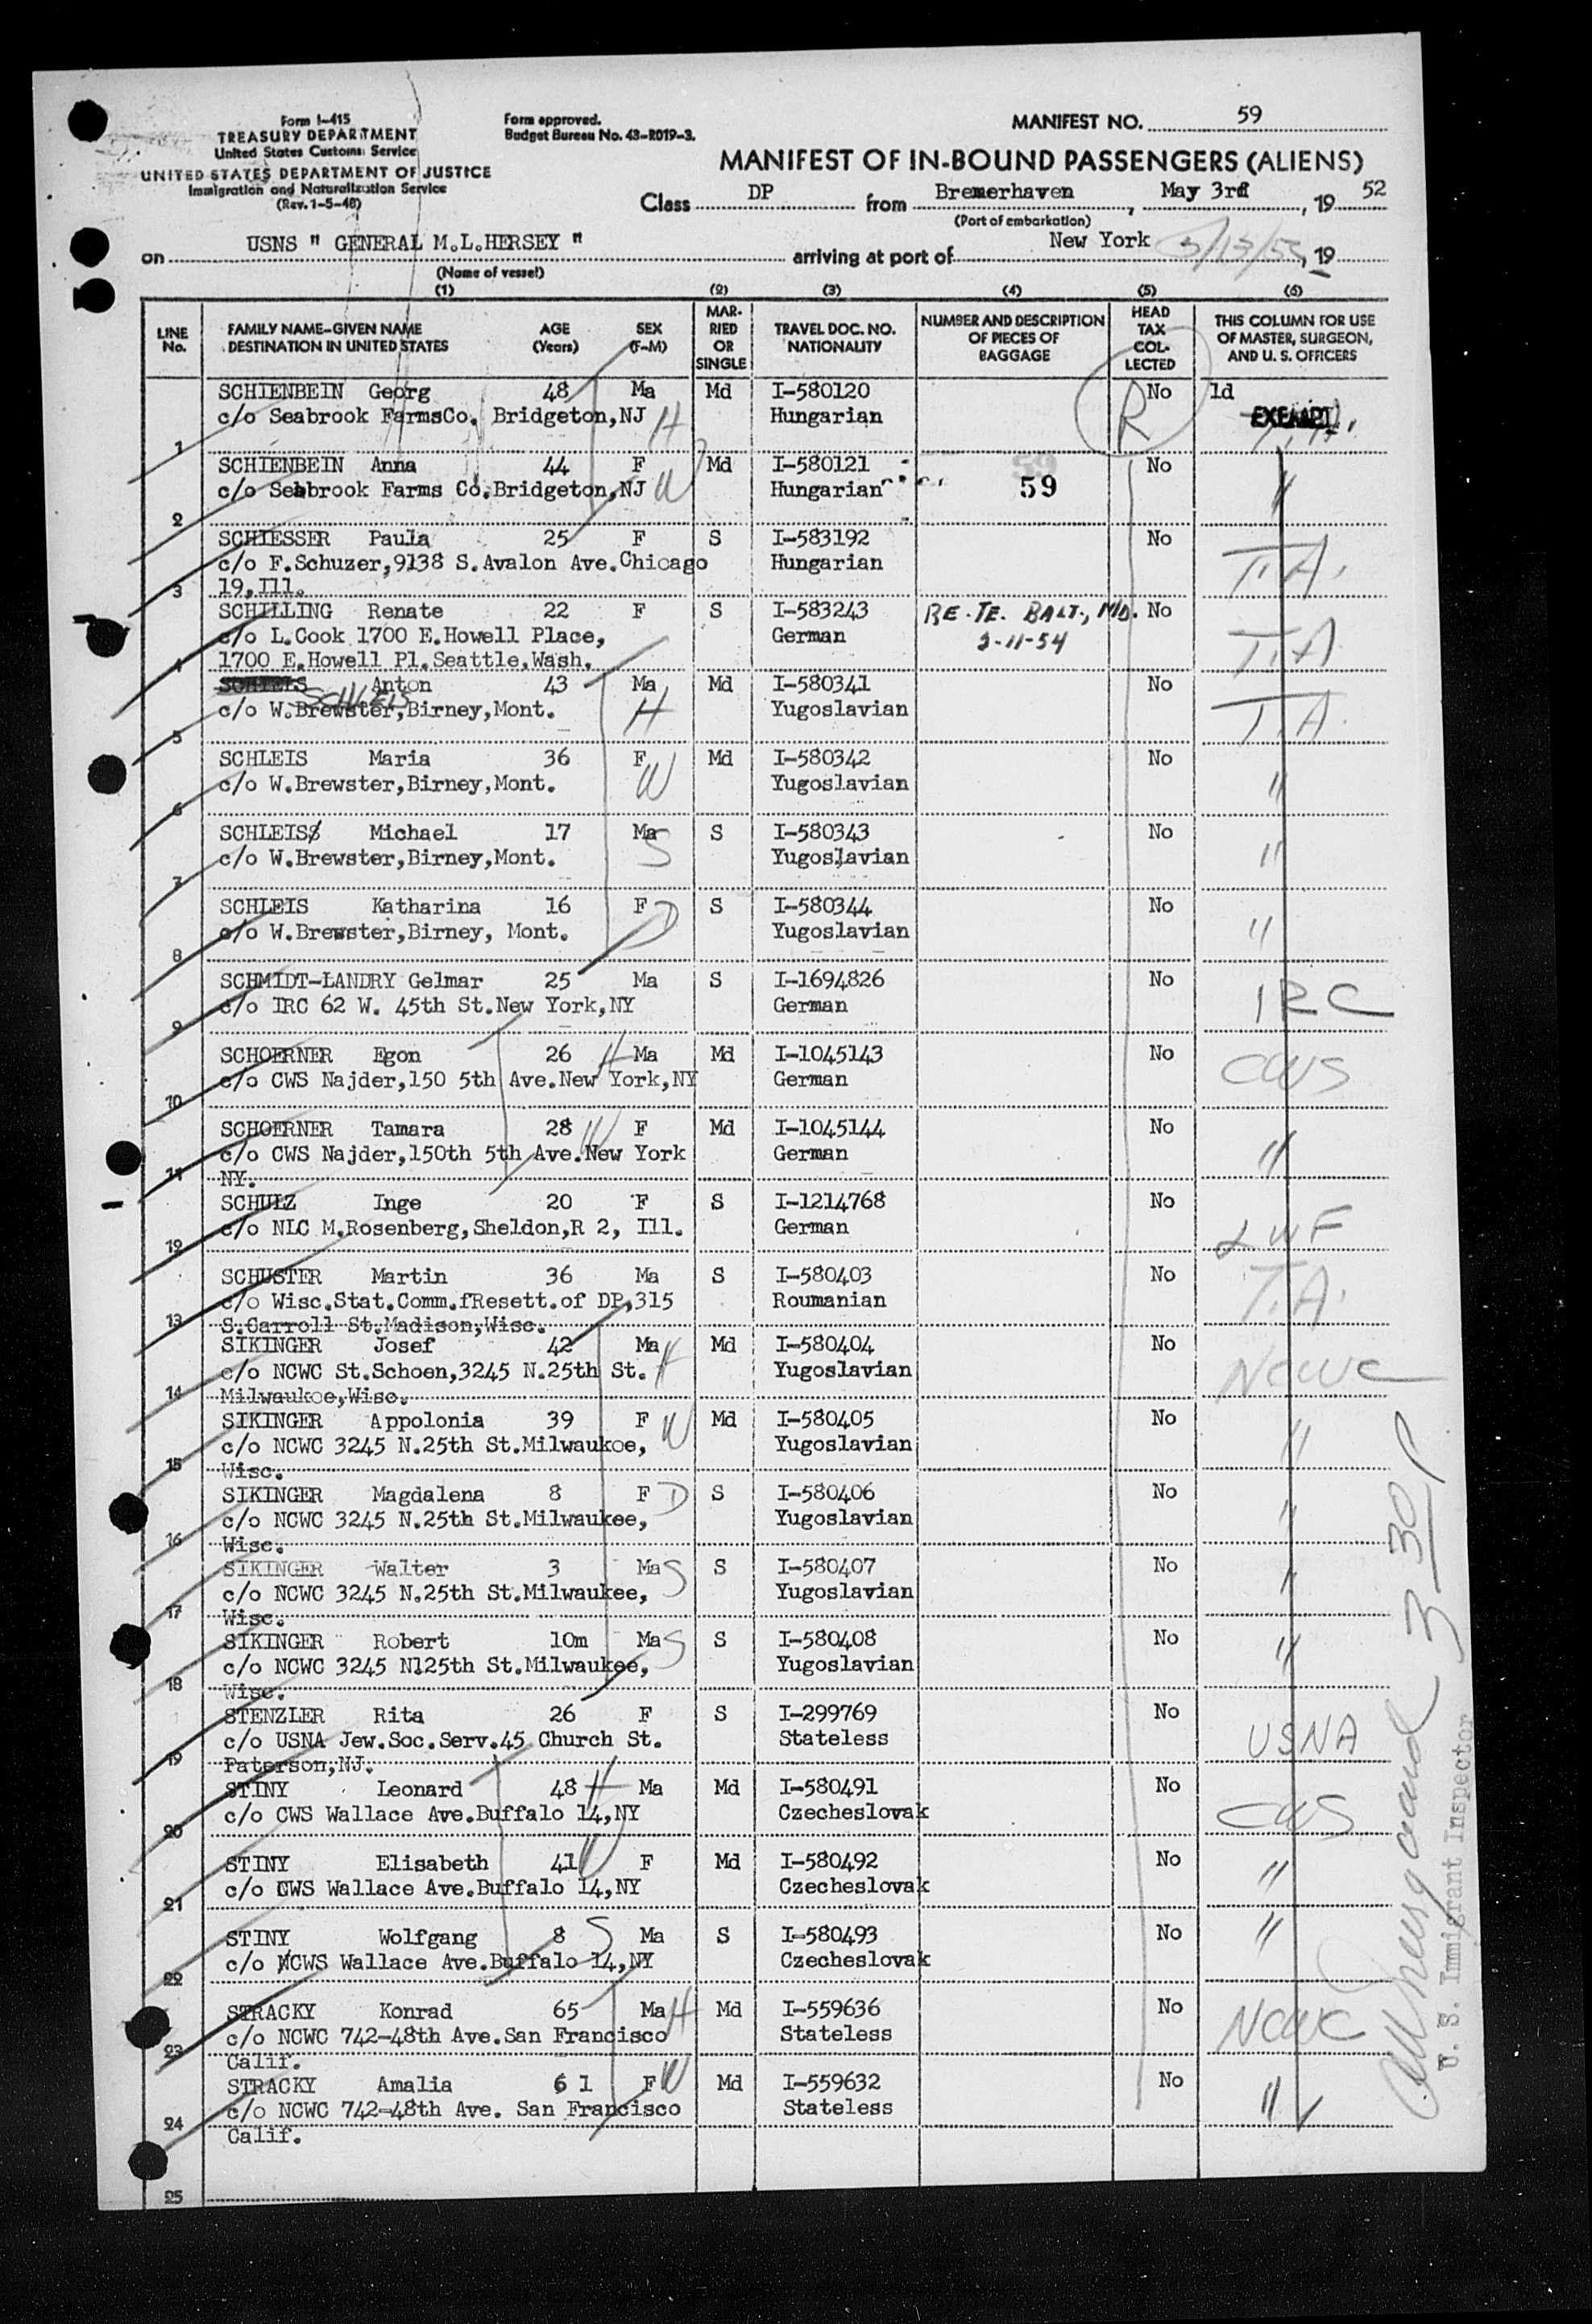 Form I-415
TREASURY DEPARTMENT
United States Customs Service
UNITED STATES DEPARTMENT OF JUSTICE
Immigration and Naturalization Service
(Rev. 1-5-48)
Form approved.
Budget Bureau No. 43-R019-3.
MANIFEST NO. 59
MANIFEST OF IN-BOUND PASSENGERS (ALIENS)
Class DP from Bremerhaven, May 3rd, 19 52
(Port of embarkation)
on USNS " GENERAL M.L.HERSEY " arriving at port of New York, 19
(Name of vessel)
(1) (2) (3) (4) (5) (6)
LINE No. FAMILY NAME-GIVEN NAME DESTINATION IN UNITED STATES AGE (Years) SEX (F-M) MARRIED OR SINGLE TRAVEL DOC. NO. NATIONALITY NUMBER AND DESCRIPTION OF PIECES OF BAGGAGE HEAD TAX COLLECTED THIS COLUMN FOR USE OF MASTER, SURGEON, AND U. S. OFFICERS
1 SCHIENBEIN Georg 48 Ma Md I-580120 No ld
c/o Seabrook FarmsCo. Bridgeton,NJ H Hungarian R EXEMPT
2 SCHIENBEIN Anna 44 F Md I-580121 59 No "
c/o Seabrook Farms Co.Bridgeton,NJ W Hungarian 59
3 SCHIESSER Paula 25 F S I-583192 No T.A.
c/o F.Schuzer,9138 S.Avalon Ave.Chicago Hungarian
19,Ill.
4 SCHILLING Renate 22 F S I-583243 RE.TE. BALT., MD. No T.A
c/o L.Cook 1700 E.Howell Place, German 2-11-54
1700 E.Howell Pl.Seattle,Wash.
5 SCHIELS Anton 43 Ma Md I-580341 No T.A.
SCHLEIS
c/o W.Brewster,Birney,Mont. H Yugoslavian
6 SCHLEIS Maria 36 F Md I-580342 No "
c/o W.Brewster,Birney,Mont. W Yugoslavian
7 SCHLEISS Michael 17 Ma S I-580343 No "
c/o W.Brewster,Birney,Mont. S Yugoslavian
8 SCHLEIS Katharina 16 F D S I-580344 No "
c/o W.Brewster,Birney, Mont. Yugoslavian
9 SCHMIDT-LANDRY Gelmar 25 Ma S I-1694826 No IRC
c/o IRC 62 W. 45th St.New York,NY German
10 SCHOERNER Egon 26 H Ma Md I-1045143 No CWS
c/o CWS Najder,150 5th Ave.New York,NY German
11 SCHOERNER Tamara 28 W F Md I-1045144 No "
c/o CWS Najder,150th 5th Ave.New York German
NY.
12 SCHULZ Inge 20 F S I-1214768 No LWF
c/o NLC M.Rosenberg,Sheldon,R 2, Ill. German
13 SCHUSTER Martin 36 Ma S I-580403 No T.A.
c/o Wisc.Stat.Comm.fResett.of DP,315 Roumanian
S.Carroll St.Madison,Wisc.
14 SIKINGER Josef 42 Ma H Md I-580404 No NCWC
c/o NCWC St.Schoen,3245 N.25th St. Yugoslavian
Milwaukoe,Wisc.
15 SIKINGER Appolonia 39 F W Md I-580405 No "
c/o NCWC 3245 N.25th St.Milwaukoe, Yugoslavian
Wisc.
16 SIKINGER Magdalena 8 F D S I-580406 No "
c/o NCWC 3245 N.25th St.Milwaukee, Yugoslavian
Wisc.
17 SIKINGER Walter 3 Ma S S I-580407 No "
c/o NCWC 3245 N.25th St.Milwaukee, Yugoslavian
Wisc.
18 SIKINGER Robert 10m Ma S S I-580408 No "
c/o NCWC 3245 N125th St.Milwaukee, Yugoslavian
Wisc.
19 STENZLER Rita 26 F S I-299769 No USNA
c/o USNA Jew.Soc.Serv.45 Church St. Stateless
Paterson,NJ.
20 STINY Leonard 48 H Ma Md I-580491 No CWS
c/o CWS Wallace Ave.Buffalo 14,NY Czecheslovak
21 STINY Elisabeth 41 W F Md I-580492 No "
c/o CWS Wallace Ave.Buffalo 14,NY Czecheslovak
22 STINY Wolfgang 8 S Ma S I-580493 No "
c/o NCWS Wallace Ave.Buffalo 14,NY Czecheslovak
23 STRACKY Konrad 65 Ma H Md I-559636 No NCWC
c/o NCWC 742-48th Ave.San Francisco Stateless
Calif.
24 STRACKY Amalia 61 F W Md I-559632 No "
c/o NCWC 742-48th Ave. San Francisco Stateless
Calif.
25
U. S. Immigrant Inspector